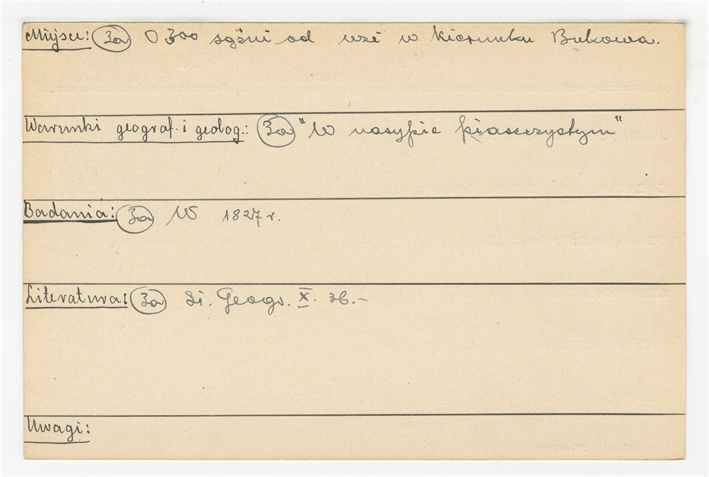 Miejsce: (3a) O 300 sążni od wsi w kierunku Bukowa.
Warunki geograf. i geolog.: (3a) "W nasypie piaszczystym"
Badania: (3a) W 1827 r.
Literatura: (3a) Sł. Geogr. X. 36.-
Uwagi: